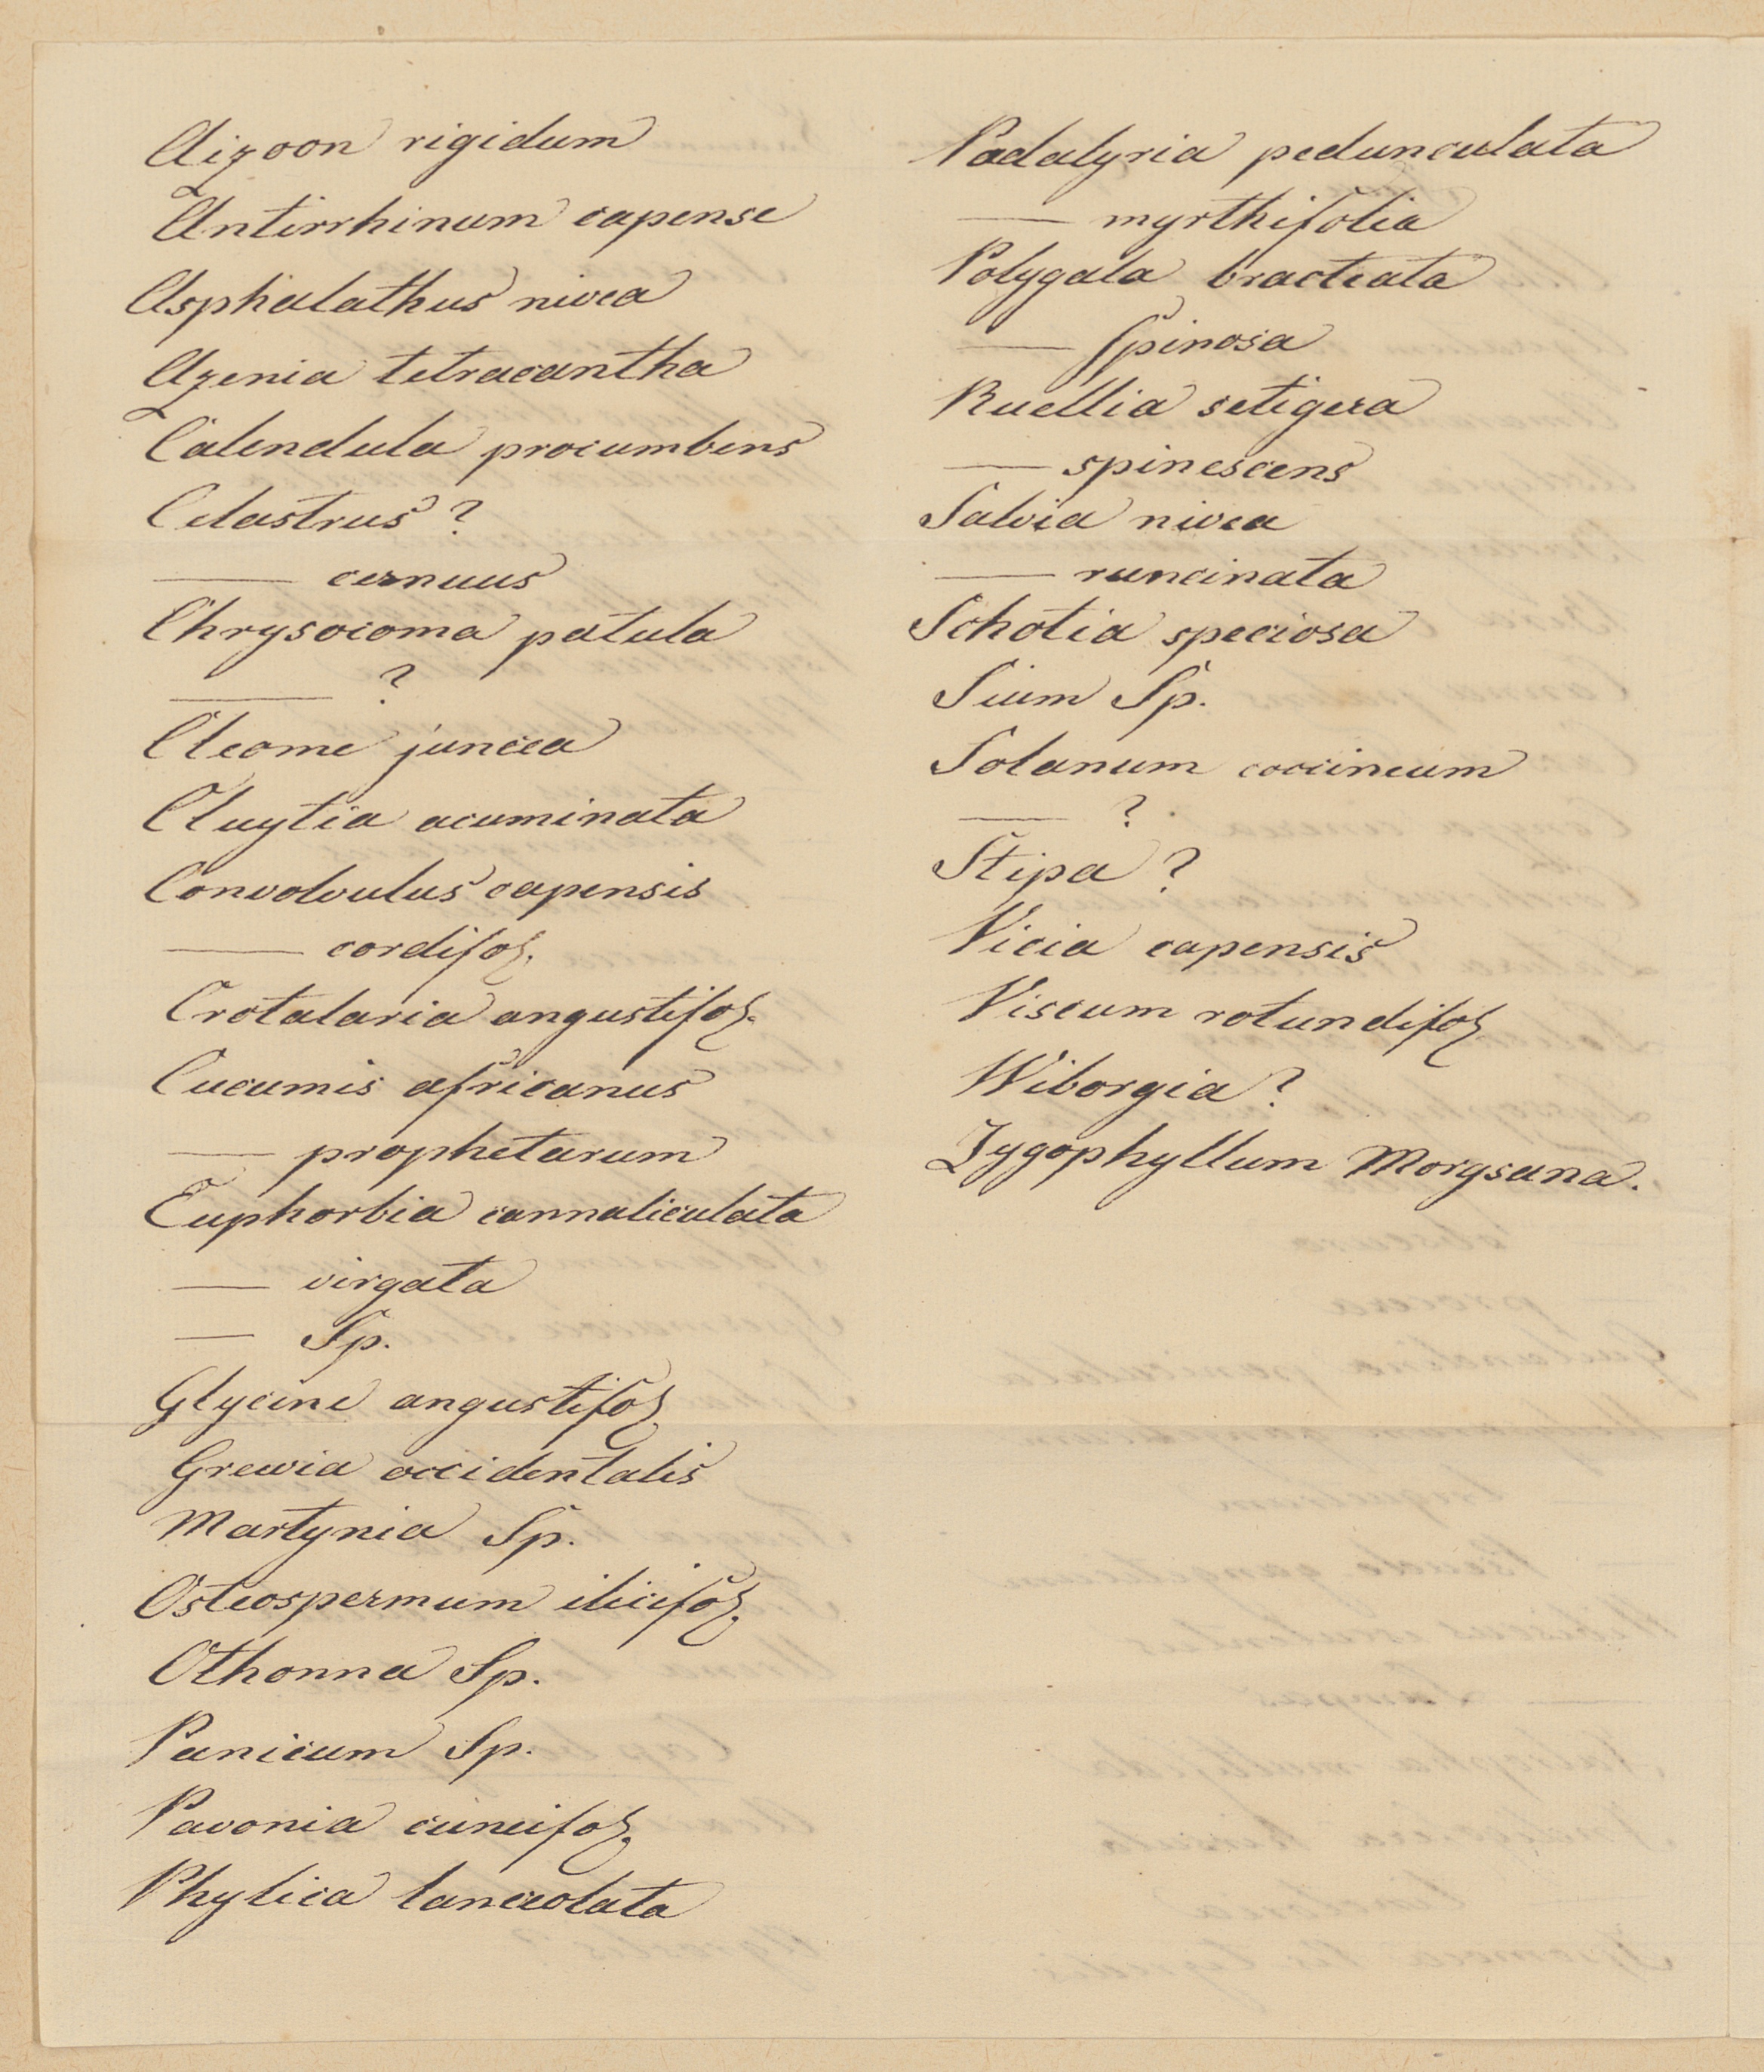 Aizoon rigidum
Antirrhinum capense
Asphalathus nivea
Azenia tetracantha
Calendula procumbens
Celastrus ?
—— cernuus
Chrysocoma patula
—— ?
Cleome juncea
Cluytia acuminata
Convolvulus capensis
—— cordifol.
Crotalaria angustifol.
Cucumis africanus
—— prophetarum
Euphorbia cannaliculata
—— virgata
— Sp.
Glycine angustifol
Grewia occidentalis
Martynia Sp.
Osteospermum ilicifol.
Othonna Sp.
Panicum Sp.
Pavonia cuneifol.
Phylica lanceolata
Padalyria pedunculata
—— myrthifolia
Polygala bracteata
—— Spinosa
Ruellia setigera
—— spinescens
Salvia nivea
—— runcinata
Schotia speciosa
Sium Sp.
Solanum coccineum
—— ?
Stipa ?
Vicia capensis
Viscum rotundifol
Wiborgia ?
Zygophyllum Morgsana.